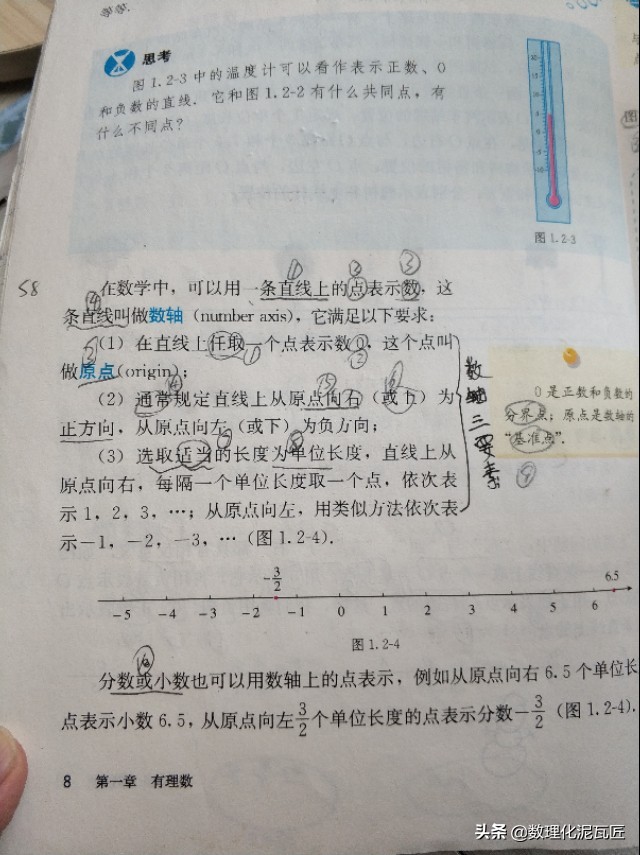 思考
图 1.2-3 中的温度计可以看作表示正数、0
和负数的直线. 它和图 1.2-2 有什么共同点，有
什么不同点？
图 1.2-3
58
① ② ③
在数学中，可以用一条直线上的点表示数，这
④
条直线叫做数轴 (number axis)，它满足以下要求：
(1) 在直线上任取一个点表示数 0，这个点叫
做原点(origin)；
(2) 通常规定直线上从原点向右（或上）为
正方向，从原点向左（或下）为负方向；
(3) 选取适当的长度为单位长度，直线上从
原点向右，每隔一个单位长度取一个点，依次表
示 1，2，3，…；从原点向左，用类似方法依次表
示−1，−2，−3，…（图 1.2-4）.
数轴三要素
0 是正数和负数的
分界点；原点是数轴的
“基准点”.
⑨
−3/2 6.5
−5 −4 −3 −2 −1 0 1 2 3 4 5 6
图 1.2-4
⑩
分数或小数也可以用数轴上的点表示，例如从原点向右 6.5 个单位长
点表示小数 6.5，从原点向左3/2个单位长度的点表示分数−3/2（图 1.2-4）.
8 第一章 有理数
头条 @数理化泥瓦匠